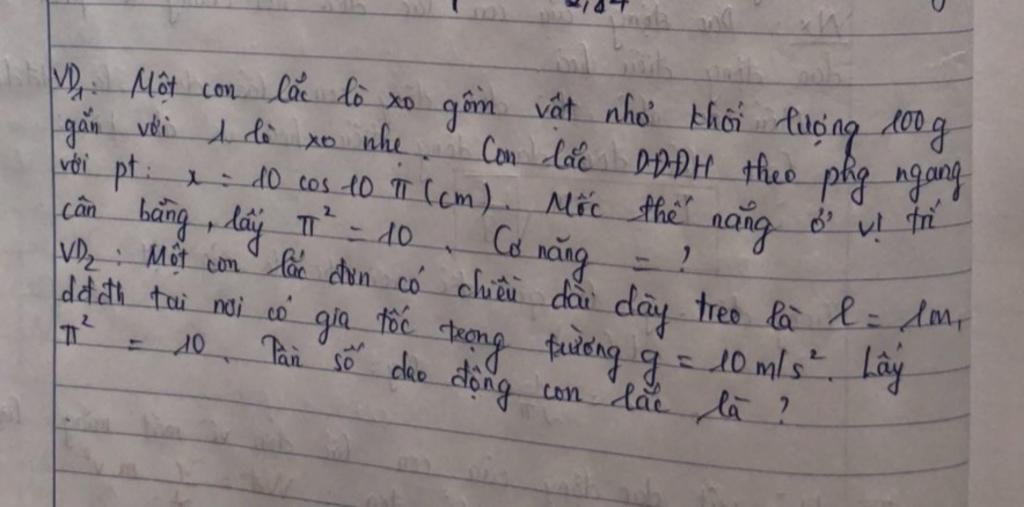 VD1: Một con lắc lò xo gồm vật nhỏ khối lượng 100g
gắn với 1 lò xo nhẹ. Con lắc DĐĐH theo phg ngang
với pt: x = 10 cos 10 π (cm). Mốc thế năng ở vị trí
cân bằng, lấy π² = 10. Cơ năng = ?
VD2: Một con lắc đơn có chiều dài dây treo là l = 1m,
dđđh tại nơi có gia tốc trọng trường g = 10 m/s². Lấy
π² = 10. Tần số dao động con lắc là ?